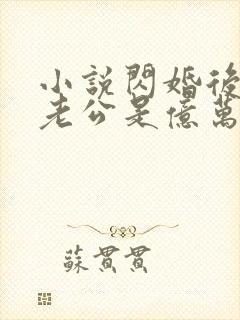 小說閃婚後
老公是億萬
蘇貫貫